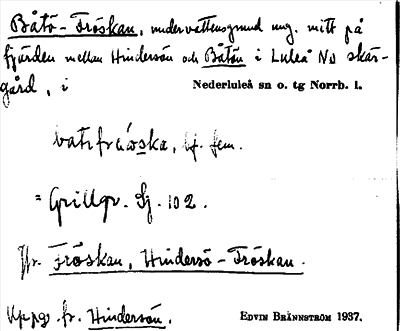 Båtö-Fröskan, undervattensgrund ung. mitt på
fjärden mellan Hindersön och Båtön i Luleå No skär-
gård, i Nederluleå sn o. tg Norrb. l.
bf. fem.
= Grillgr. Sj. 102.
Jfr. Fröskan, Hindersö-Fröskan.
Uppg. fr. Hindersön. EDVIN BRÄNNSTRÖM 1937.